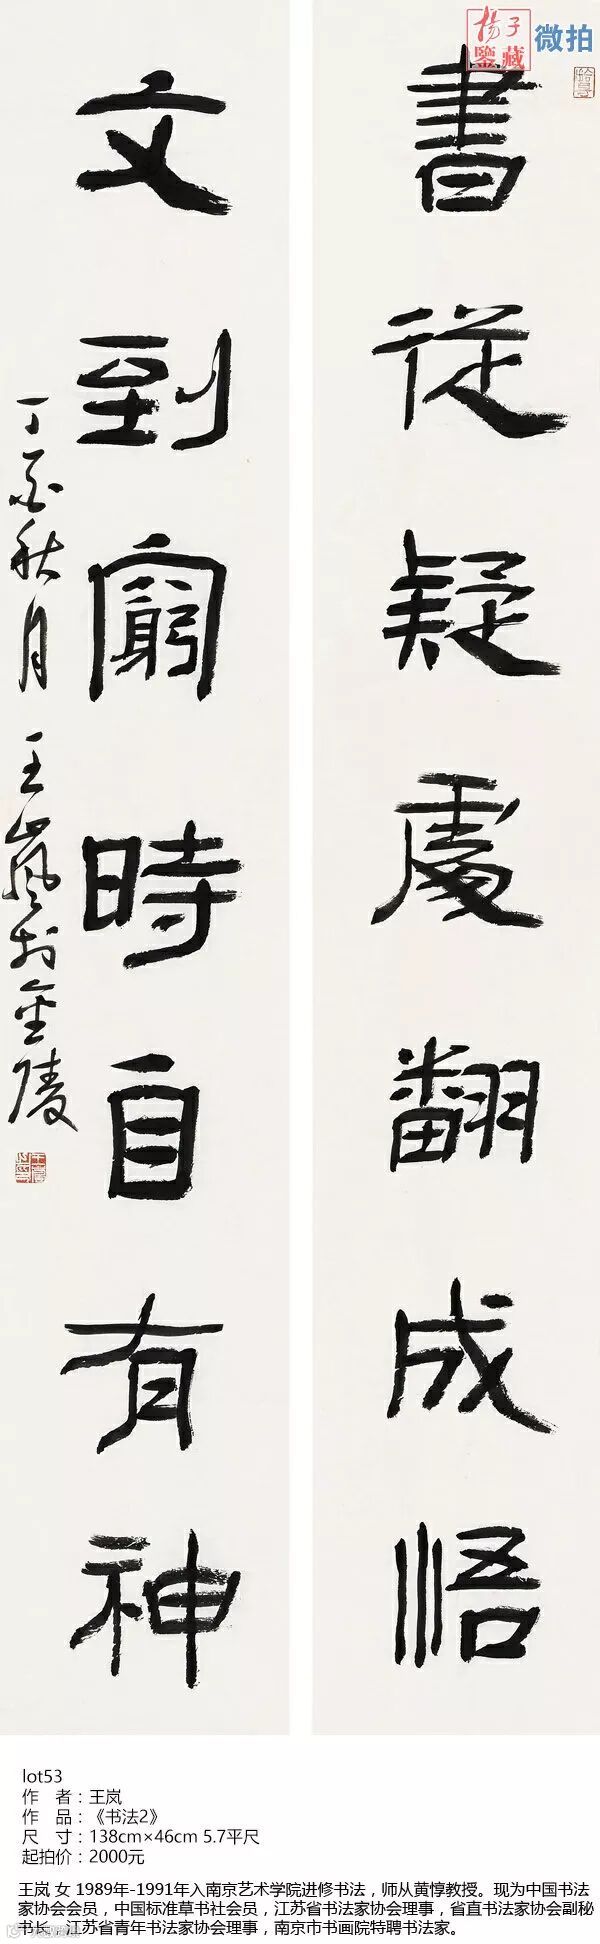 揚子
鑒藏
微拍
書從疑處翻成悟
文到窮時自有神
丁酉秋月 王嵐於金陵
lot53
作 者：王岚
作 品：《书法2》
尺 寸：138cm×46cm 5.7平尺
起拍价：2000元
王岚 女 1989年-1991年入南京艺术学院进修书法，师从黄惇教授。现为中国书法
家协会会员，中国标准草书社会员，江苏省书法家协会理事，省直书法家协会副秘
书长、江苏省青年书法家协会理事，南京市书画院特聘书法家。